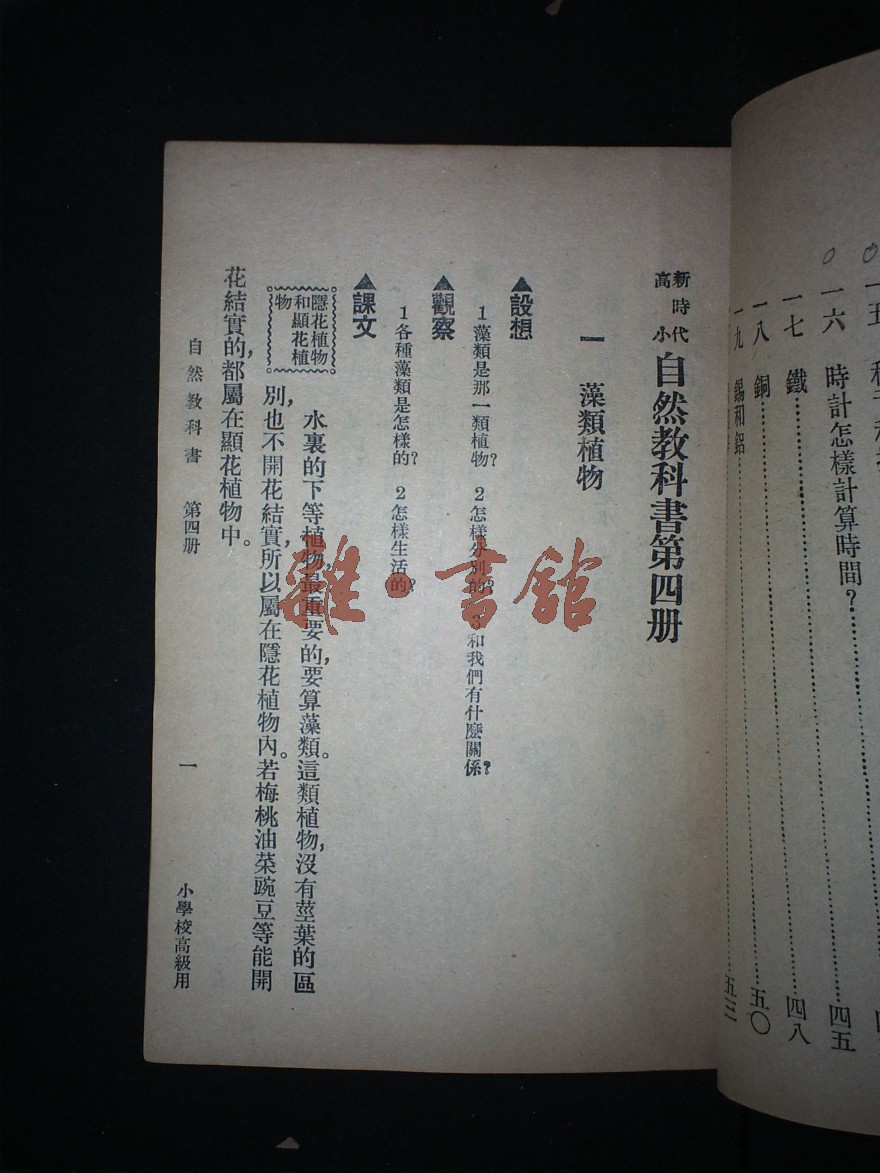 一六 時計怎樣計算時間?……四五
一七 鐵……四八
一八 銅……五〇
一九 錫和鋁……五三
新時代高小 自然教科書第四册
一 藻類植物
▲設想
1藻類是那一類植物? 2怎樣分別的? 3和我們有什麼關係?
▲觀察
1各種藻類是怎樣的? 2怎樣生活的?
▲課文
隱花植物
和顯花植
物
水裏的下等植物,最重要的,要算藻類。這類植物,沒有莖葉的區
別,也不開花結實,所以屬在隱花植物內。若梅桃油菜豌豆等能開
花結實的,都屬在顯花植物中。
自然教科書 第四册 一 小學校高級用
雜·書館